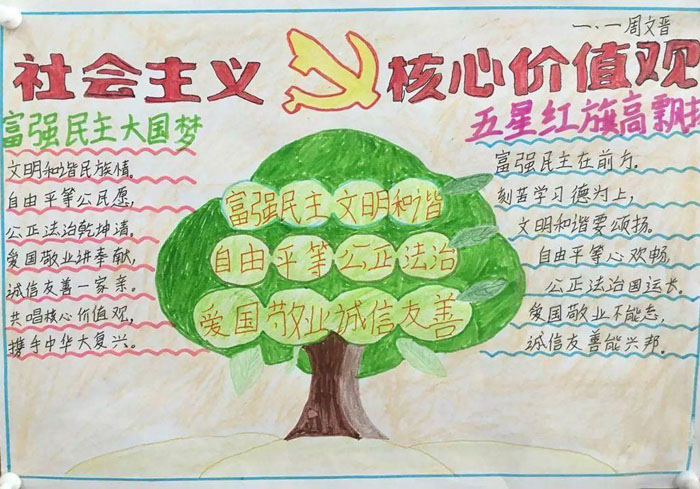 一.一周文晋
社会主义核心价值观
富强民主大国梦
文明和谐民族情。
自由平等公民愿，
公正法治乾坤清。
爱国敬业讲奉献，
诚信友善一家亲。
共唱核心价值观，
携手中华大复兴。
富强民主文明和谐
自由平等公正法治
爱国敬业诚信友善
五星红旗高飘扬
富强民主在前方。
刻苦学习德为上，
文明和谐要颂扬。
自由平等心欢畅，
公正法治国运长。
爱国敬业不能忘，
诚信友善能兴邦。